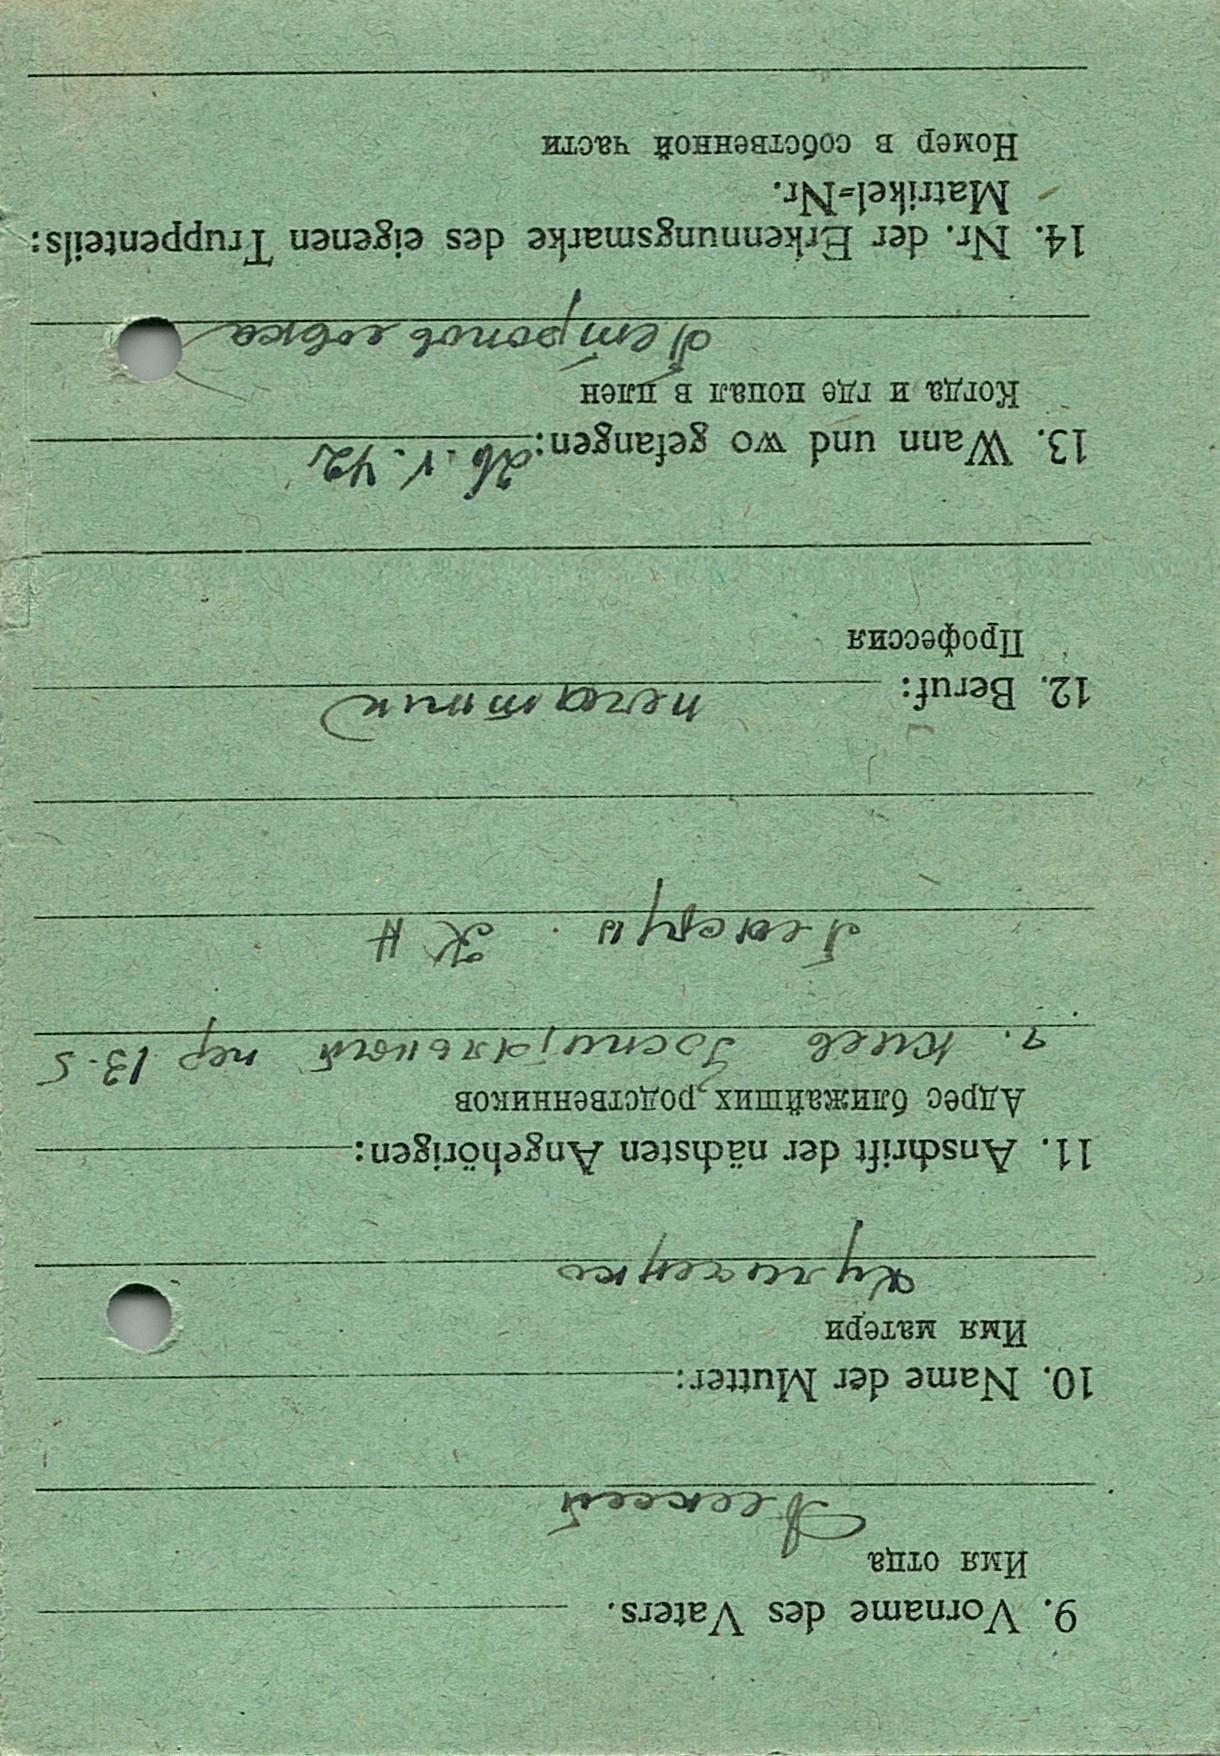 9. Vorname des Vaters.
Имя отца
Алексей
10. Name der Mutter:
Имя матери
11. Anschrift der nächsten Angehörigen:
Адрес ближайших родственников
г. Киев Госпитальной пер 13-5
КН
12. Beruf:
Профессия
печатник
13. Wann und wo gefangen: 26. V. 42
Когда и где попал в плен
14. Nr. der Erkennungsmarke des eigenen Truppenteils:
Matrikel=Nr.
Номер в собственной части